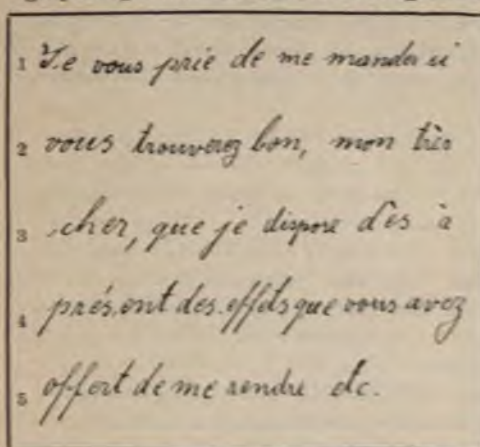 1 Je vous prie de me mander si
2 vous trouverez bon, mon très
3 cher, que je dispose dès à
4 présent des effets que vous avez
5 offert de me rendre etc.